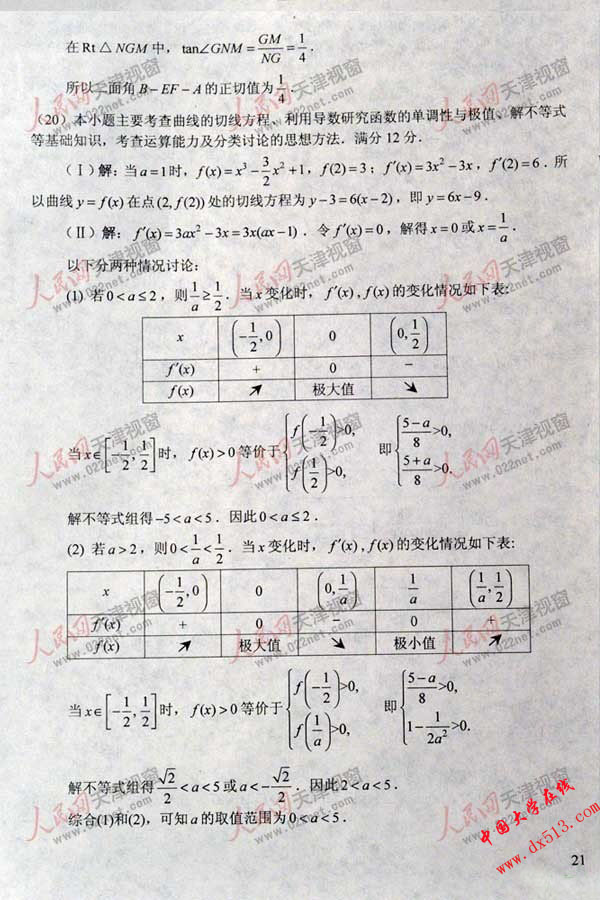 在 Rt △ NGM 中, tan∠GNM = GM/NG = 1/4 .
所以二面角 B－EF－A 的正切值为 1/4 .
(20) 本小题主要考查曲线的切线方程、利用导数研究函数的单调性与极值、解不等式
等基础知识，考查运算能力及分类讨论的思想方法．满分 12 分．
(Ⅰ) 解: 当 a=1 时, f(x)=x³－3/2x²+1, f(2)=3; f′(x)=3x²－3x, f′(2)=6．所
以曲线 y=f(x) 在点(2, f(2)) 处的切线方程为 y－3=6(x－2), 即 y=6x－9．
(Ⅱ) 解: f′(x)=3ax²－3x=3x(ax－1)．令 f′(x)=0, 解得 x=0 或 x=1/a．
以下分两种情况讨论:
(1) 若 0<a≤2, 则 1/a≥1/2．当 x 变化时, f′(x), f(x) 的变化情况如下表:
x (－1/2,0) 0 (0,1/2)
f′(x) + 0 －
f(x) ↗ 极大值 ↘
当 x∈[－1/2,1/2] 时, f(x)>0 等价于 { f(－1/2)>0, f(1/2)>0, 即 { (5－a)/8>0, (5+a)/8>0.
解不等式组得 －5<a<5．因此 0<a≤2．
(2) 若 a>2, 则 0<1/a<1/2．当 x 变化时, f′(x), f(x) 的变化情况如下表:
x (－1/2,0) 0 (0,1/a) 1/a (1/a,1/2)
f′(x) + 0 － 0 +
f(x) ↗ 极大值 ↘ 极小值 ↗
当 x∈[－1/2,1/2] 时, f(x)>0 等价于 { f(－1/2)>0, f(1/a)>0, 即 { (5－a)/8>0, 1－1/(2a²)>0.
解不等式组得 √2/2<a<5 或 a<－√2/2．因此 2<a<5．
综合(1)和(2), 可知 a 的取值范围为 0<a<5．
中国大学在线
www.dx513.com
21
人民网 天津视窗
www.022net.com